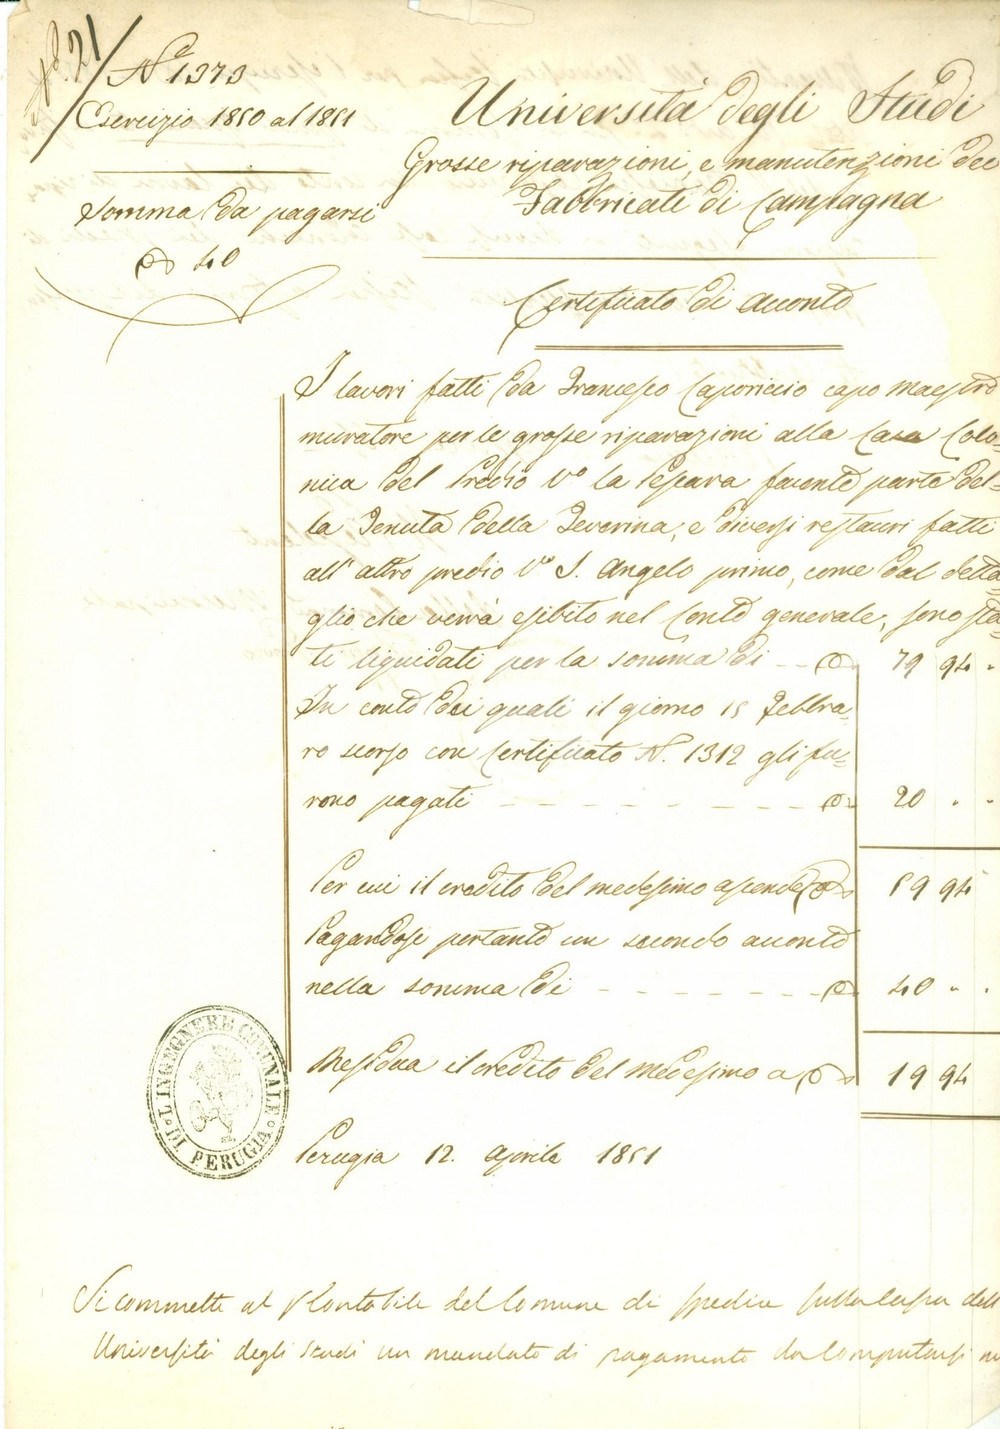 N.º 1373
Esercizio 1850 al 1851
Somma da pagarsi
40
Università degli Studi
Grosse riparazioni, e manutenzioni dei
Fabbricati di Campagna
Certificato di acconto
I lavori fatti da Francesco Caporiccio capo maestro
muratore per le grosse riparazioni alla Casa Colo-
nica del Predio Vº la Pepara facente parte del-
la Tenuta della Teverina, e diversi restauri fatti
all' altro predio Vº S. Angelo primo, come dal detta-
glio che verrà esibito nel Conto generale, sono sta-
ti liquidati per la somma di 79 94
In conto dei quali il giorno 15 Febbra-
ro scorso con Certificato N. 1312 gli fu-
rono pagati 20
Per cui il credito del medesimo ascende 59 94
Pagandosi pertanto un secondo acconto
nella somma di 40
Residua il credito del medesimo a 19 94
L'INGEGNERE COMUNALE DI PERUGIA
Perugia 12. Aprile 1851
Si commette al Contabile del Comune di spedire sulla Cassa dell
Università degli Studi un mandato di pagamento da computarsi